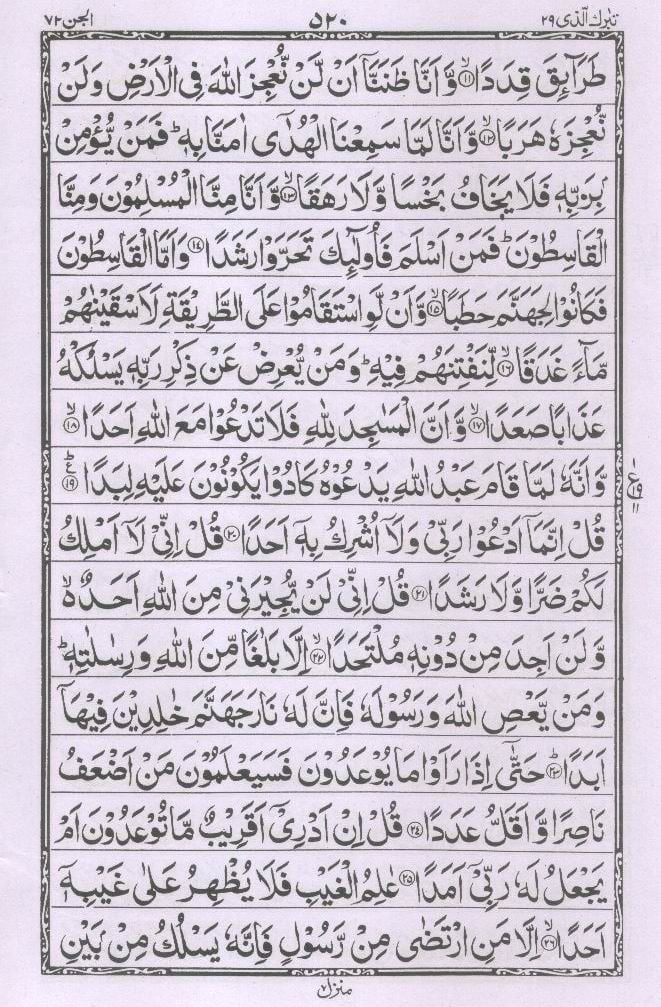 تبٰرك الّذى ٢٩ ٥٢٠ الجن ٧٢
طَرَآئِقَ قِدَدًا ۙ﴿۱۱﴾ وَّ اَنَّا ظَنَنَّاۤ اَنْ لَّنْ نُّعْجِزَ اللّٰهَ فِى الْاَرْضِ وَلَنْ
نُّعْجِزَهٗ هَرَبًا ۙ﴿۱۲﴾ وَّ اَنَّا لَمَّا سَمِعْنَا الْهُدٰۤى اٰمَنَّا بِهٖ ؕ فَمَنْ يُّؤْمِنْۢ
بِرَبِّهٖ فَلَا يَخَافُ بَخْسًا وَّ لَا رَهَقًا ۙ﴿۱۳﴾ وَّ اَنَّا مِنَّا الْمُسْلِمُوْنَ وَمِنَّا
الْقٰسِطُوْنَ ؕ فَمَنْ اَسْلَمَ فَاُولٰٓئِكَ تَحَرَّوْا رَشَدًا ﴿۱۴﴾ وَ اَمَّا الْقٰسِطُوْنَ
فَكَانُوْا لِجَهَنَّمَ حَطَبًا ۙ﴿۱۵﴾ وَّ اَنْ لَّوِ اسْتَقَامُوْا عَلَى الطَّرِيْقَةِ لَاَسْقَيْنٰهُمْ
مَّآءً غَدَقًا ۙ﴿۱۶﴾ لِّنَفْتِنَهُمْ فِيْهِ ؕ وَمَنْ يُّعْرِضْ عَنْ ذِكْرِ رَبِّهٖ يَسْلُكْهُ
عَذَابًا صَعَدًا ۙ﴿۱۷﴾ وَّ اَنَّ الْمَسٰجِدَ لِلّٰهِ فَلَا تَدْعُوْا مَعَ اللّٰهِ اَحَدًا ۙ﴿۱۸﴾
وَّ اَنَّهٗ لَمَّا قَامَ عَبْدُ اللّٰهِ يَدْعُوْهُ كَادُوْا يَكُوْنُوْنَ عَلَيْهِ لِبَدًا ؕ﴿۱۹﴾ ع
قُلْ اِنَّمَاۤ اَدْعُوْا رَبِّىْ وَلَاۤ اُشْرِكُ بِهٖۤ اَحَدًا ﴿۲۰﴾ قُلْ اِنِّىْ لَاۤ اَمْلِكُ
لَكُمْ ضَرًّا وَّ لَا رَشَدًا ﴿۲۱﴾ قُلْ اِنِّىْ لَنْ يُّجِيْرَنِىْ مِنَ اللّٰهِ اَحَدٌ ۙ
وَّ لَنْ اَجِدَ مِنْ دُوْنِهٖ مُلْتَحَدًا ۙ﴿۲۲﴾ اِلَّا بَلٰغًا مِّنَ اللّٰهِ وَ رِسٰلٰتِهٖ ؕ
وَمَنْ يَّعْصِ اللّٰهَ وَ رَسُوْلَهٗ فَاِنَّ لَهٗ نَارَ جَهَنَّمَ خٰلِدِيْنَ فِيْهَاۤ
اَبَدًا ؕ﴿۲۳﴾ حَتّٰۤى اِذَا رَاَوْا مَا يُوْعَدُوْنَ فَسَيَعْلَمُوْنَ مَنْ اَضْعَفُ
نَاصِرًا وَّ اَقَلُّ عَدَدًا ﴿۲۴﴾ قُلْ اِنْ اَدْرِىْۤ اَقَرِيْبٌ مَّا تُوْعَدُوْنَ اَمْ
يَجْعَلُ لَهٗ رَبِّىْۤ اَمَدًا ﴿۲۵﴾ عٰلِمُ الْغَيْبِ فَلَا يُظْهِرُ عَلٰى غَيْبِهٖۤ
اَحَدًا ۙ﴿۲۶﴾ اِلَّا مَنِ ارْتَضٰى مِنْ رَّسُوْلٍ فَاِنَّهٗ يَسْلُكُ مِنْۢ بَيْنِ
منزل ۷